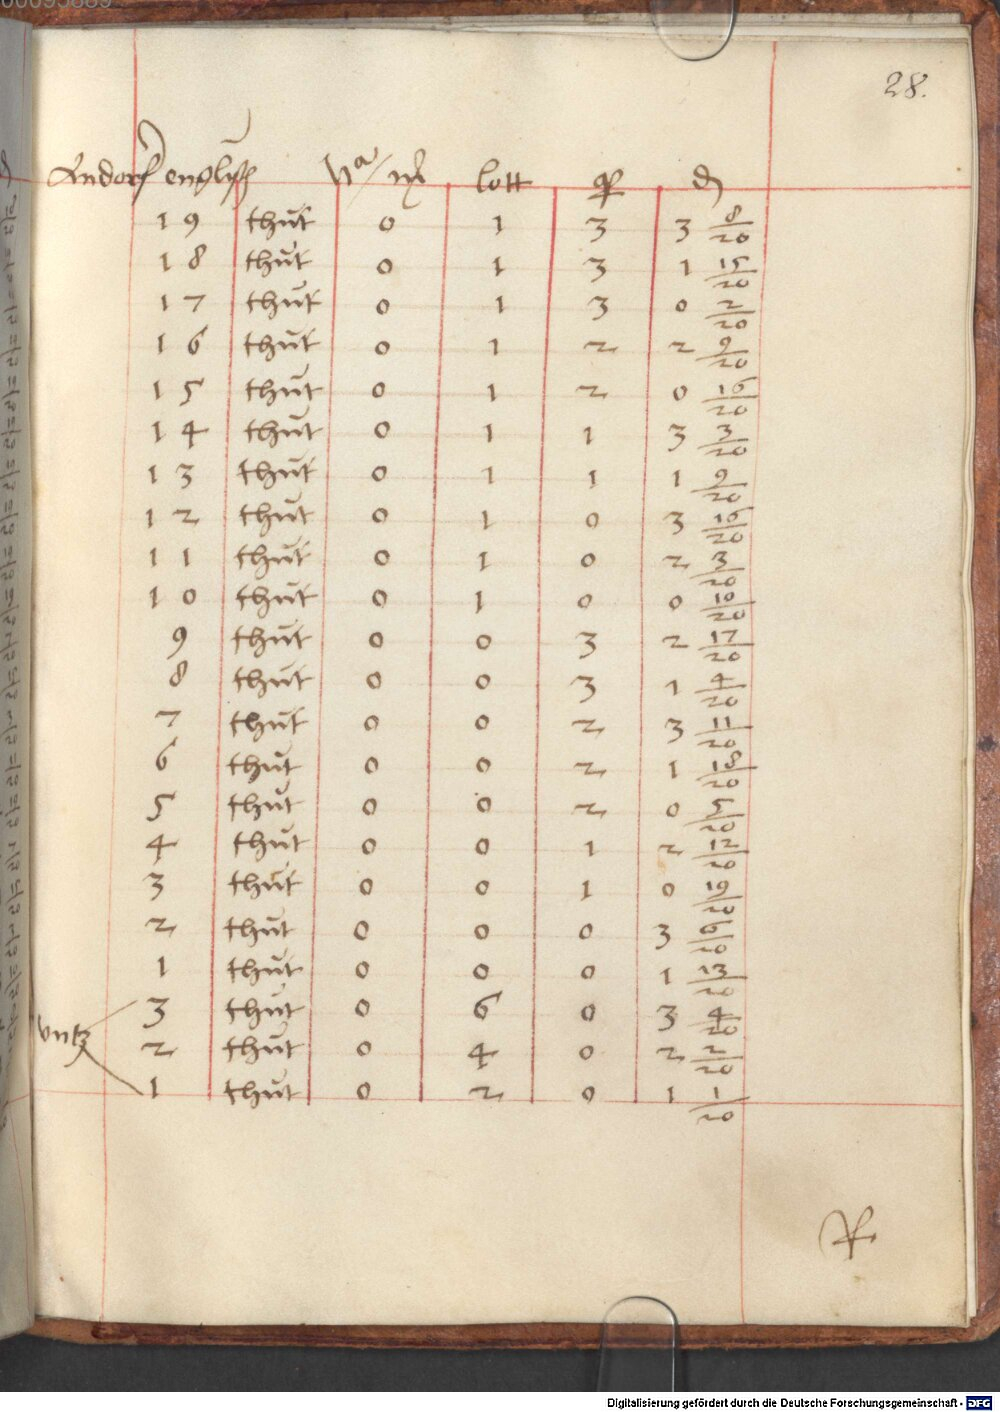 28.
Andorf englisch lott
19 thut 0 1 3 3 8/20
18 thut 0 1 3 1 15/20
17 thut 0 1 3 0 2/20
16 thut 0 1 2 2 9/20
15 thut 0 1 2 0 16/20
14 thut 0 1 1 3 3/20
13 thut 0 1 1 1 9/20
12 thut 0 1 0 3 16/20
11 thut 0 1 0 2 3/20
10 thut 0 1 0 0 10/20
9 thut 0 0 3 2 17/20
8 thut 0 0 3 1 4/20
7 thut 0 0 2 3 11/20
6 thut 0 0 2 1 18/20
5 thut 0 0 2 0 5/20
4 thut 0 0 1 2 12/20
3 thut 0 0 1 0 19/20
2 thut 0 0 0 3 6/20
1 thut 0 0 0 1 13/20
3 thut 0 6 0 3 4/20
vntz 2 thut 0 4 0 2 2/20
1 thut 0 2 0 1 1/20
Digitalisierung gefördert durch die Deutsche Forschungsgemeinschaft - DFG